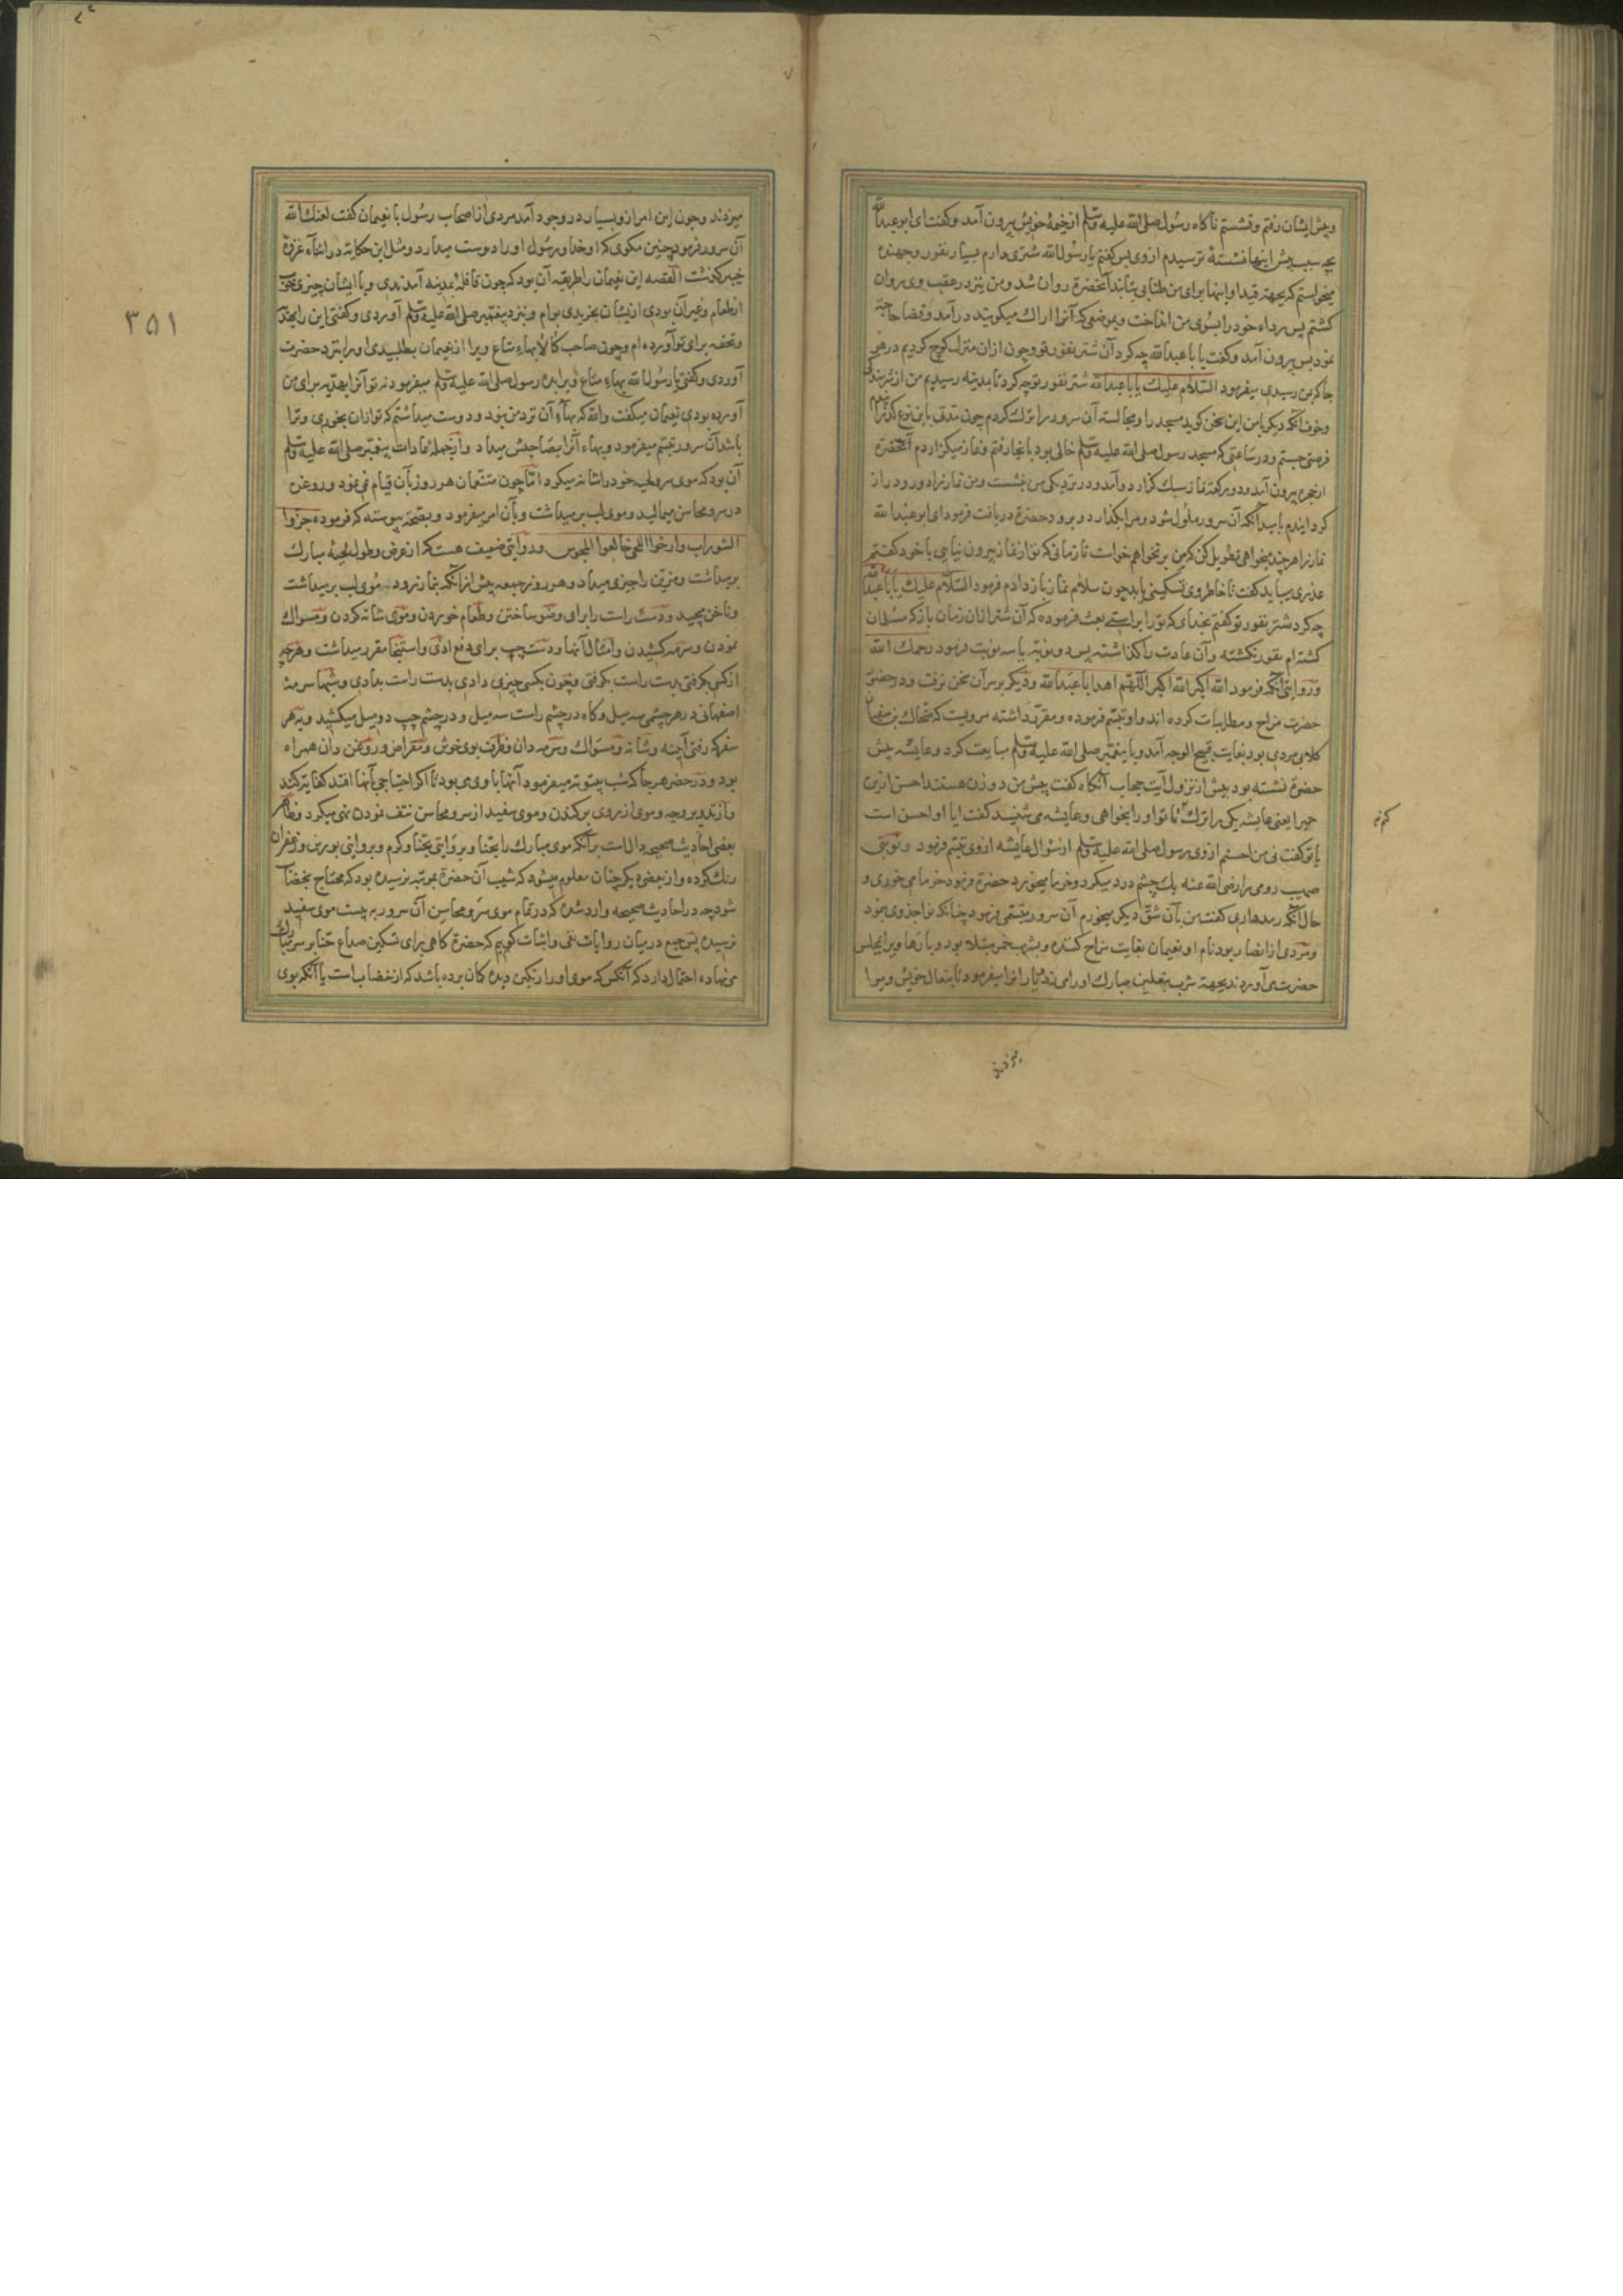 وپیش ایشان رفتم ونشستم ناکاه رسول صلی الله علیه وسلم ازخیمهٔ خویش بیرون آمد وکفت ای ابوعبدالله
بچه سبب پیش اینها نشستهٔ ترسیدم ازوی پس کفتم یا رسول الله شتری دارم بسیار نفور وجهنده
میخواستم که بجهته قید او اینها برای من طنابی بتابند آنحضرة روان شد ومن نیز در عقب وی روان
کشتم پس رداء خود را بسوی من انداخت وبموضعی که آنرا اراك میکویند درآمد وقضا حاجة
نمود پس بیرون آمد وکفت یا با عبدالله چه کرد آن شتر نفور تو وچون ازان منزل کوچ کردیم درهر
جا که بمن رسیدی میفرمود السلام علیك یا با عبدالله شتر نفور تو چه کرد تا بمدینه رسیدیم من از شرمندکی
وخوف آنکه دیکر با من این سخن کوید مسجد را ومجالسة آن سرور را ترك کردم چون مدتی باین نوع
فرصتی جستم ودر ساعتی که مسجد رسول صلی الله علیه وسلم خالی بود بانجا رفتم ونماز میکزاردم آنحضرة
از حجره بیرون آمد ودو رکعة نماز سبك کزارد وآمد ودر نزدیکی من بنشست ومن نماز را دور ودراز
کردانیدم بامید آنکه آن سرور ملول شود ومرا بکذارد وبرود حضرة دریافت فرمود ای ابوعبدالله
نماز را هرچند میخواهی تطویل کن که من برنخواهم خواست تا زمانی که تو از نماز بیرون نیایی با خود کفتم
عذری میباید کفت تا خاطر وی تسکینی یابد چون سلام نماز باز دادم فرمود السلام علیك یا با عبدالله
چه کرد شتر نفور تو کفتم بخدای که تو را براستی بعث فرموده که آن شتر ازان زمان باز که مسلمان
کشته‌ام نفور نکشته وآن عادت را کذاشته پس دو نوبة یا سه نوبت فرمود رحمك الله
وروایتی آنکه فرمود الله اکبر الله اکبر اللهم اهد ابا عبدالله ودیکر برسر آن سخن نرفت ودرحضور
حضرت مزاح ومطایبات کرده اند واو تبسم فرموده ومقرر داشته مرویست که ضحاك بن سفیان
کلابی مردی بود بغایت قبیح الوجه آمد وبا پیغمبر صلی الله علیه وسلم مبایعت کرد وعایشه پیش
حضرة نشسته بود پیش از نزول آیت حجاب آنکاه کفت پیش من دو زن هستند احسن ازین
حمیرا یعنی عایشه یکی را ترك کنم تا تو او را بخواهی وعایشه می شنید کفت ایا او احسن است
یا تو کفت نی من احسنم ازوی رسول صلی الله علیه وسلم از سؤال عایشه ازوی تبسم فرمود ونوبتی
صهیب رومی را رضی الله عنه یك چشم درد میکرد وخرما میخورد حضرة فرمود خرما می خوری و
حال آنکه رمد داری کفت من بآن شق دیکر میخورم آن سرور تبسمی فرمود چنانکه نواجذ وی نمود
ومردی از انصار بود نام او نعیمان بغایت مزاح کننده وبشرب خمر مبتلا بود وبارها ویرا بمجلس
حضرت می آوردند بجهة شرب بنعلین مبارك او را می زد ویاران را میفرمود تا بنعال خویش ویرا
کم نم
میزدند
۳۵۱
میزدند وچون این امر ازو بسیار در وجود آمد مردی از اصحاب رسول با نعیمان کفت لعنك الله
آن سرور فرمود چنین مکوی که او خدا ورسول او را دوست میدارد ومثل این حکایة در اثناء غزوهٔ
خیبر کذشت القصه این نعیمان را طریقه آن بود که چون قافلهٔ بمدینه آمدندی وبا ایشان چیزی تحفه
از طعام وغیر آن بودی ازیشان بخریدی بوام ونزد پیغمبر صلی الله علیه وسلم آوردی وکفتی این را بهدیه
وتحفه برای تو آورده ام وچون صاحب کالا بهاء متاع ویرا از نعیمان بطلبیدی او را بنزد حضرت
آوردی وکفتی یا رسول الله بهاء متاع ویرا بده رسول صلی الله علیه وسلم میفرمود نه تو آنرا بهدیه برای من
آورده بودی نعیمان میکفت والله که بهاء آن نزد من نبود ودوست میداشتم که تو ازان بخوری وترا
باشد آن سرور تبسم میفرمود وبهاء آنرا بصاحبش میداد وازجمله عادات پیغمبر صلی الله علیه وسلم
آن بود که موی سر ولحیهٔ خود را شانه میکرد اما چون متنعمان هر روز بآن قیام نمی نمود وروغن
در سر ومحاسن میمالید وموی لب برمیداشت وبآن امر میفرمود وبصحت پیوسته که فرموده جزوا
الشوراب وارخوا اللحی خالفوا المجوس ودر روایتی ضعیف هست که از عرض وطول لحیهٔ مبارك
برمیداشت ومزین را چیزی میداد وهر روز جمعه پیش ازانکه بنماز رود موی لب برمیداشت
وناخن میچید ودست راست را برای وضو ساختن وطعام خوردن وموی شانه کردن ومسواك
نمودن وسرمه کشیدن وامثال آنها ودست چپ برای دفع اذی واستنجا مقرر میداشت وهرچه
از کسی بکرفتی بدست راست بکرفتی وچون بکسی چیزی دادی بدست راست بدادی وشبها سرمهٔ
اصفهانی در هر چشمی سه میل وکاه در چشم راست سه میل ودر چشم چپ دو میل میکشید وبهر
سفر که رفتی آینه وشانه ومسواك وسرمه دان وظرف بوی خوش ومقراض وروغن دان همراه
بود ودر حضر هر جا که شب بیتوته میفرمود آنها با وی بود تا اکر احتیاجی بآنها افتد کفایة کند
وموی از روی برکندن وموی سفید از سر ومحاسن نتف نمودن نهی میکرد وظاهر
بعضی احادیث صحیحه دال است برآنکه موی مبارك را بحنا وبروایتی بحنا وکتم وبروایتی بورس وزعفران
رنك کرده واز بعضی دیکر چنان معلوم میشود که شیب آن حضرة بمرتبه نرسیده بود که محتاج بخضاب
شود چه در احادیث صحیحه وارد شده که در تمام موی سر ومحاسن آن سرور بیست موی سفید
نرسیده پس جمع در بیان روایات نفی واثبات کوییم که حضرة کاهی برای تسکین صداع حنا بر سر مبارك
می نهاده احتمال دارد که آنکس که موی او را رنکین دیده کمان برده باشد که از خضاب است یا آنکه بوی